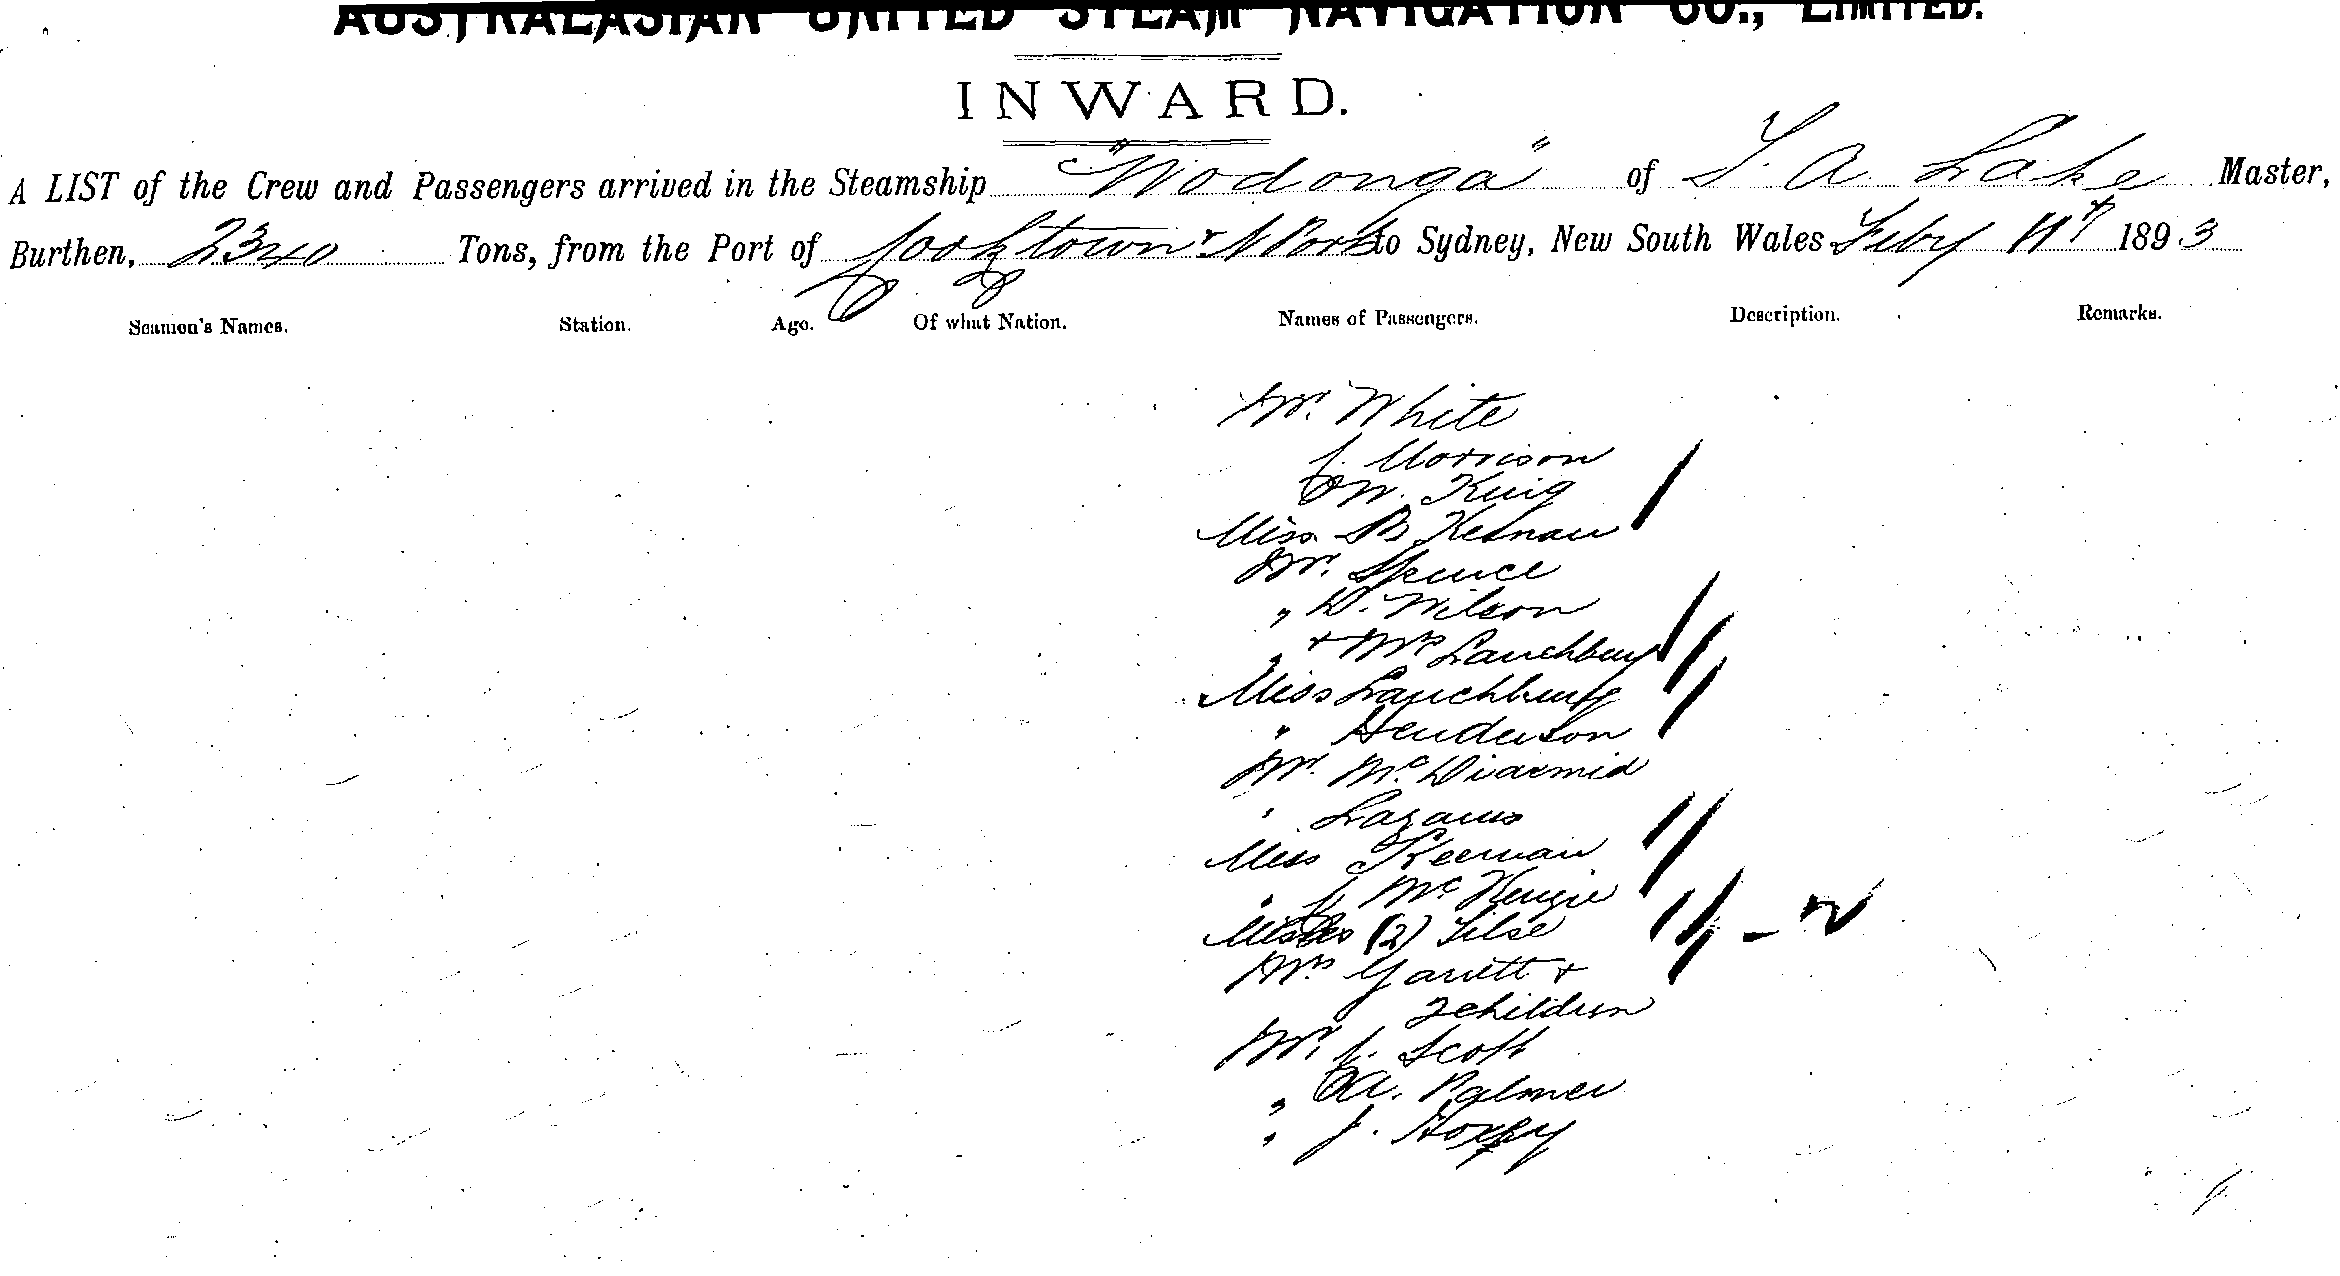 AUSTRALASIAN UNITED STEAM NAVIGATION CO., LIMITED.
INWARD.
A LIST of the Crew and Passengers arrived in the Steamship "Wodonga" of S. A Lake Master,
Burthen, 2340 Tons, from the Port of Cooktown & N Ports to Sydney, New South Wales Feby 11th 1893
Seamen's Names. Station. Age. Of what Nation. Names of Passengers. Description. Remarks.
Mr. White
J. Morrison
W. King
Miss B
Mr. Spence
" D. Wilson
" & Mrs Lanchbury
Miss Lanchbury
" Henderson
Mr. McDiarmid
" Lazarus
Miss Keenan
" J McKenzie
Misses (2) Tilse
Mrs Garrett &
2 children
Mr. J. Scott
" A. Palmer
" J.